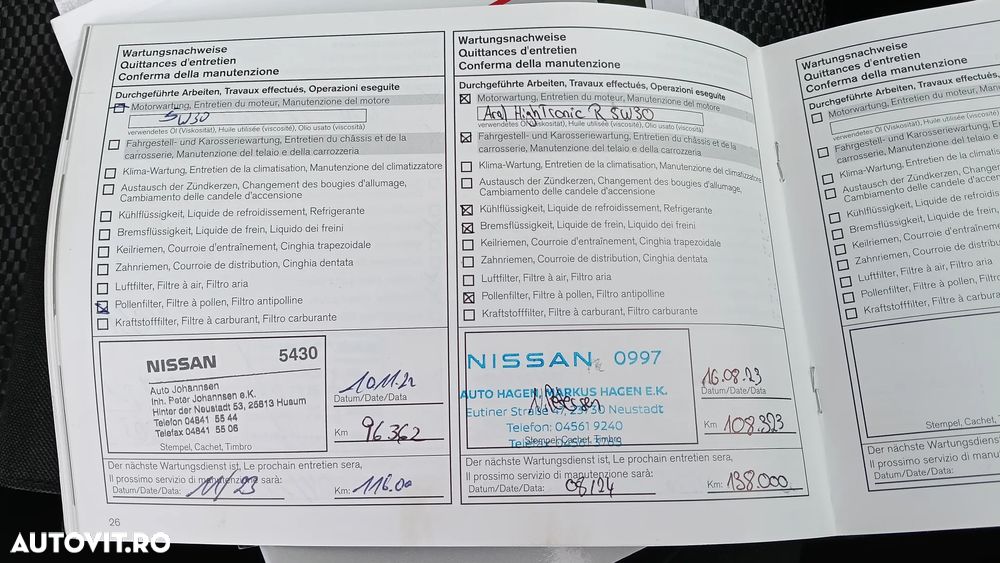 Wartungsnachweise
Quittances d'entretien
Conferma della manutenzione
Durchgeführte Arbeiten, Travaux effectués, Operazioni eseguite
Motorwartung, Entretien du moteur, Manutenzione del motore
5W30
verwendetes Öl (Viskosität), Huile utilisée (viscosité), Olio usato (viscosità)
Fahrgestell- und Karosseriewartung, Entretien du châssis et de la
carrosserie, Manutenzione del telaio e della carrozzeria
Klima-Wartung, Entretien de la climatisation, Manutenzione del climatizzatore
Austausch der Zündkerzen, Changement des bougies d'allumage,
Cambiamento delle candele d'accensione
Kühlflüssigkeit, Liquide de refroidissement, Refrigerante
Bremsflüssigkeit, Liquide de frein, Liquido dei freini
Keilriemen, Courroie d'entraînement, Cinghia trapezoidale
Zahnriemen, Courroie de distribution, Cinghia dentata
Luftfilter, Filtre à air, Filtro aria
Pollenfilter, Filtre à pollen, Filtro antipolline
Kraftstofffilter, Filtre à carburant, Filtro carburante
NISSAN 5430
Auto Johannsen
Inh. Peter Johannsen e.K.
Hinter der Neustadt 53, 25813 Husum
Telefon 04841 55 44
Telefax 04841 55 06
Stempel, Cachet, Timbro
Datum/Date/Data
Km 96.362
Der nächste Wartungsdienst ist, Le prochain entretien sera,
Il prossimo servizio di manutenzione sarà:
Datum/Date/Data: 11/23 Km: 116.00
26
Wartungsnachweise
Quittances d'entretien
Conferma della manutenzione
Durchgeführte Arbeiten, Travaux effectués, Operazioni eseguite
Motorwartung, Entretien du moteur, Manutenzione del motore
Aral HighTronic R 5W30
verwendetes Öl (Viskosität), Huile utilisée (viscosité), Olio usato (viscosità)
Fahrgestell- und Karosseriewartung, Entretien du châssis et de la
carrosserie, Manutenzione del telaio e della carrozzeria
Klima-Wartung, Entretien de la climatisation, Manutenzione del climatizzatore
Austausch der Zündkerzen, Changement des bougies d'allumage,
Cambiamento delle candele d'accensione
Kühlflüssigkeit, Liquide de refroidissement, Refrigerante
Bremsflüssigkeit, Liquide de frein, Liquido dei freini
Keilriemen, Courroie d'entraînement, Cinghia trapezoidale
Zahnriemen, Courroie de distribution, Cinghia dentata
Luftfilter, Filtre à air, Filtro aria
Pollenfilter, Filtre à pollen, Filtro antipolline
Kraftstofffilter, Filtre à carburant, Filtro carburante
NISSAN 0997
AUTO HAGEN, MARKUS HAGEN E.K.
Eutiner Straße 47, 23730 Neustadt
Telefon: 04561 9240
Stempel, Cachet, Timbro
16.08.23
Datum/Date/Data
Km 108.323
Der nächste Wartungsdienst ist, Le prochain entretien sera,
Il prossimo servizio di manutenzione sarà:
Datum/Date/Data: 08/24 Km: 138.000
Wartungsnachweise
Quittances d'entretien
Conferma della manutenzione
Durchgeführte Arbeiten, Travaux effectués,
Motorwartung, Entretien du moteur,
verwendetes Öl (Viskosität), Huile utilisée (viscosité),
Fahrgestell- und Karosseriewartung,
carrosserie, Manutenzione del telaio e
Klima-Wartung, Entretien de la
Austausch der Zündkerzen,
Cambiamento delle candele d'accensione
Kühlflüssigkeit, Liquide de
Bremsflüssigkeit, Liquide de frein,
Keilriemen, Courroie
Zahnriemen, Courroie de
Luftfilter, Filtre à air, Filtro
Pollenfilter, Filtre à pollen,
Kraftstofffilter, Filtre à
Stempel, Cachet,
Der nächste Wartungsdienst ist,
Il prossimo servizio di
Datum/Date/Data:
AUTOVIT.RO